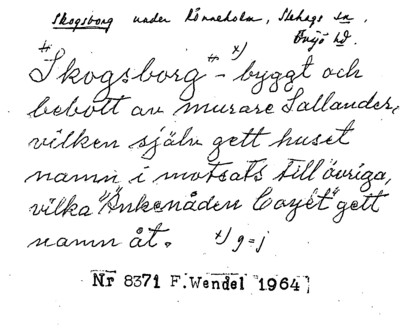 Skogsborg under Rönneholm, Stehags sn,
Onsjö hd.
"Skogsborg" x) - byggt och
bebott av murare Sallander,
vilken själv gett huset
namn i motsats till övriga,
vilka "Änkenåden Coyet" gett
namn åt. x) g=j
Nr 8371 F.Wendel 1964